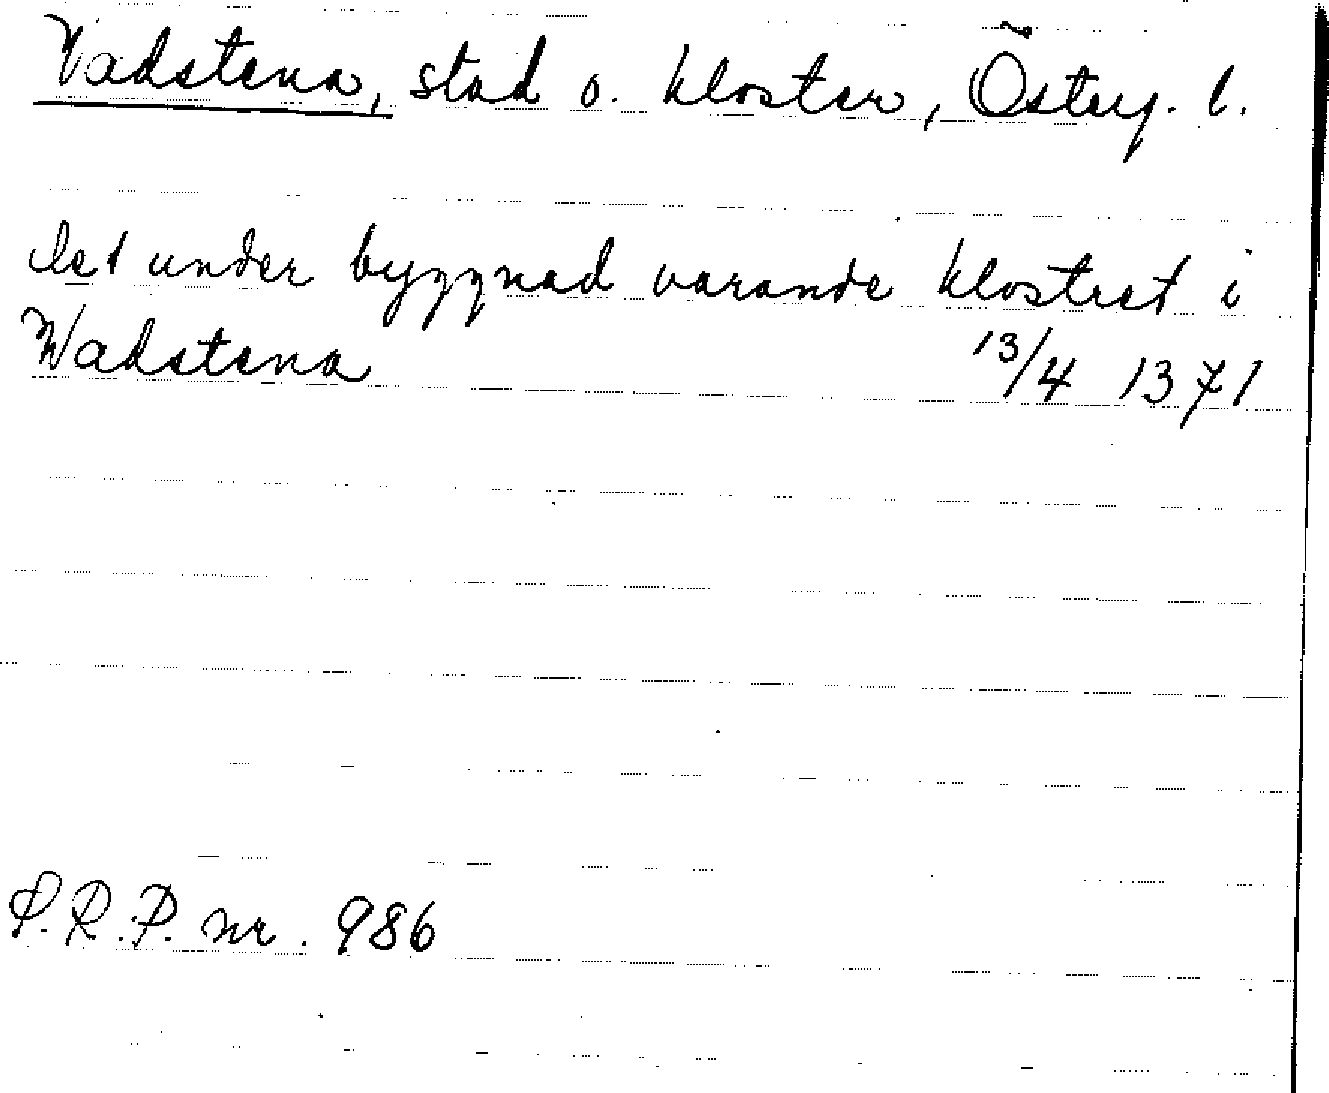 Vadstena, stad o. kloster, Österg. l.
Det under byggnad varande klostret i
Wadstena 13/4 1371
P.R.P. nr. 986